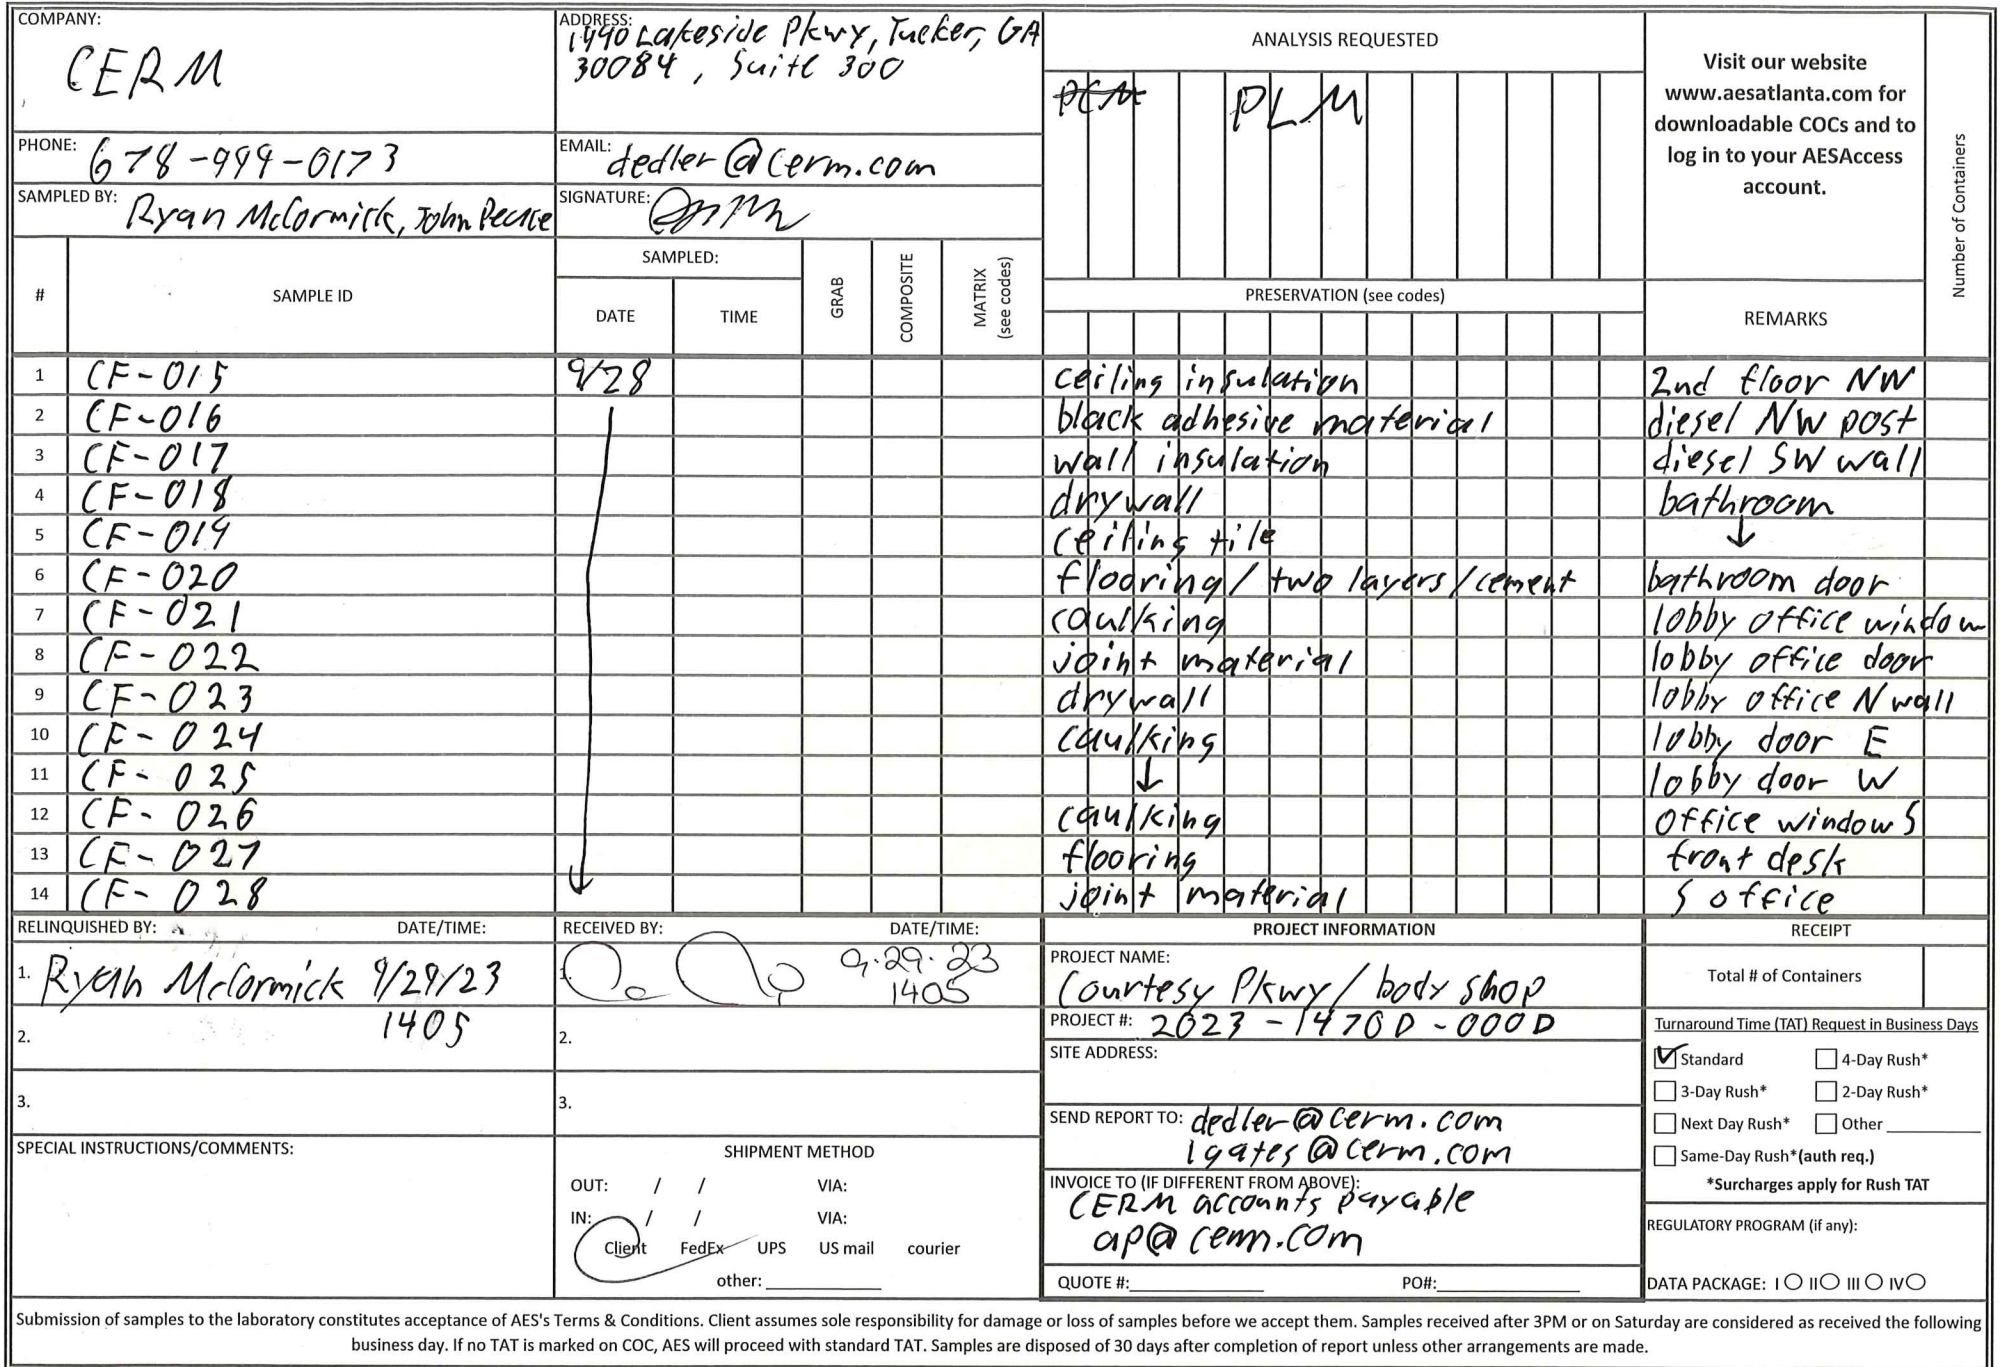 COMPANY:
CERM
ADDRESS:
1990 Lakeside Pkwy, Tucker, GA
30084, Suite 300
PHONE: 678-999-0173
EMAIL: dedler@cerm.com
SAMPLED BY: Ryan McCormick, John Pearce
SIGNATURE:
ANALYSIS REQUESTED
PLM
Visit our website
www.aesatlanta.com for
downloadable COCs and to
log in to your AESAccess
account.
Number of Containers
# SAMPLE ID SAMPLED: DATE TIME GRAB COMPOSITE MATRIX (see codes) PRESERVATION (see codes) REMARKS
1 CF-015 9/28 ceiling insulation 2nd floor NW
2 CF-016 black adhesive material diesel NW post
3 CF-017 wall insulation diesel SW wall
4 CF-018 drywall bathroom
5 CF-019 ceiling tile ↓
6 CF-020 flooring/ two layers/cement bathroom door
7 CF-021 caulking lobby office window
8 CF-022 joint material lobby office door
9 CF-023 drywall lobby office N wall
10 CF-024 caulking lobby door E
11 CF-025 ↓ lobby door W
12 CF-026 caulking office window S
13 CF-027 flooring front desk
14 CF-028 joint material S office
RELINQUISHED BY: DATE/TIME:
1. Ryan McCormick 9/29/23
1405
2.
3.
RECEIVED BY: DATE/TIME:
1. 9.29.23
1405
2.
3.
PROJECT INFORMATION
PROJECT NAME:
Courtesy Pkwy/ body shop
PROJECT #: 2023-1470D-000D
SITE ADDRESS:
SEND REPORT TO: dedler@cerm.com
lgates@cerm.com
INVOICE TO (IF DIFFERENT FROM ABOVE):
CERM accounts payable
ap@cerm.com
QUOTE #: PO#:
RECEIPT
Total # of Containers
Turnaround Time (TAT) Request in Business Days
Standard 4-Day Rush*
3-Day Rush* 2-Day Rush*
Next Day Rush* Other
Same-Day Rush*(auth req.)
*Surcharges apply for Rush TAT
REGULATORY PROGRAM (if any):
DATA PACKAGE: I II III IV
SPECIAL INSTRUCTIONS/COMMENTS:
SHIPMENT METHOD
OUT: / / VIA:
IN: / / VIA:
Client FedEx UPS US mail courier
other:
Submission of samples to the laboratory constitutes acceptance of AES's Terms & Conditions. Client assumes sole responsibility for damage or loss of samples before we accept them. Samples received after 3PM or on Saturday are considered as received the following
business day. If no TAT is marked on COC, AES will proceed with standard TAT. Samples are disposed of 30 days after completion of report unless other arrangements are made.